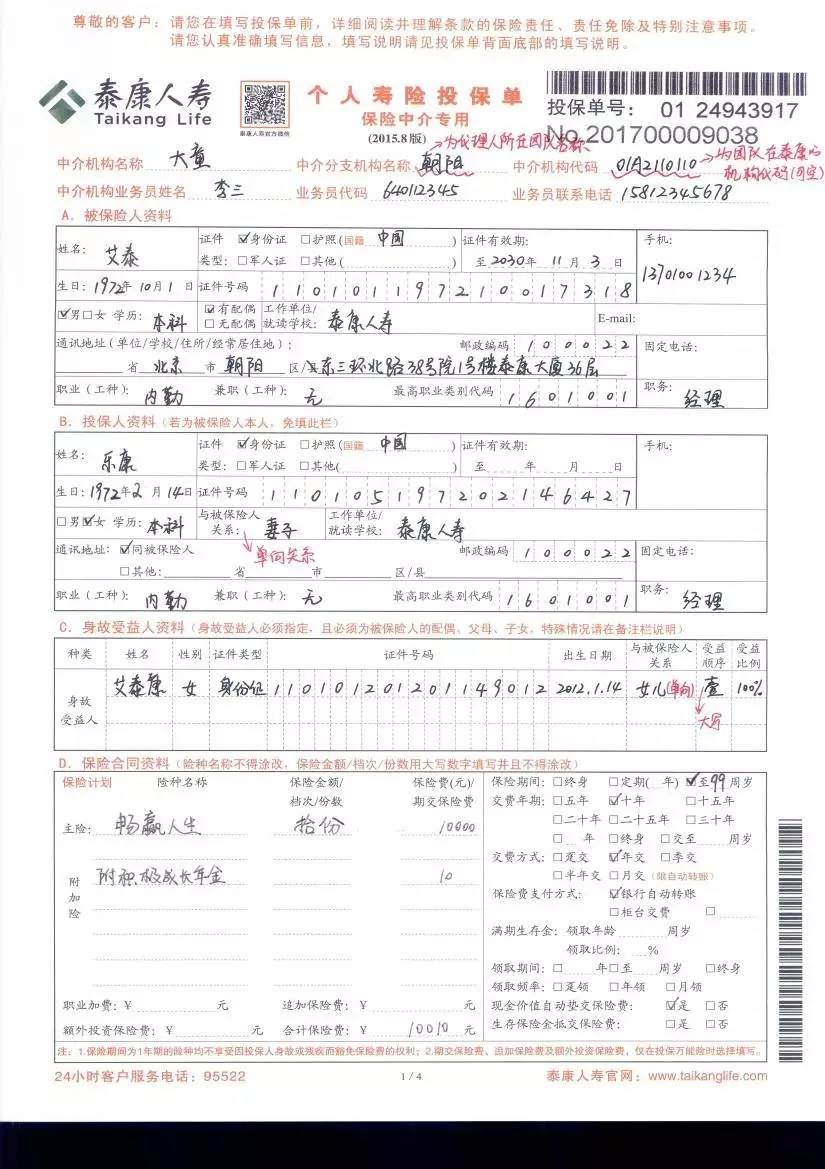 尊敬的客户：请您在填写投保单前，详细阅读并理解条款的保险责任、责任免除及特别注意事项。
请您认真准确填写信息，填写说明请见投保单背面底部的填写说明。
泰康人寿
Taikang Life
泰康人寿官方微信
个人寿险投保单
保险中介专用
(2015.8版)
投保单号： 01 24943917
No.201700009038
为代理人所在团队名称
中介机构名称 大童 中介分支机构名称 朝阳 中介机构代码 01A2110110
为团队在泰康的机构代码(可空)
中介机构业务员姓名 李三 业务员代码 640112345 业务员联系电话 15812345678
A. 被保险人资料
姓名： 艾泰 证件类型： ☑身份证 □护照(国籍 中国) □军人证 □其他( ) 证件有效期： 至2030年 11月 3日 手机： 13701001234
生日：1972年10月1日 证件号码 110101197210017318
☑男□女 学历：本科 ☑有配偶 □无配偶 工作单位/就读学校： 泰康人寿 E-mail:
通讯地址(单位/学校/住所/经常居住地)： 邮政编码 100022 固定电话：
省 北京 市 朝阳 区/县东三环北路38号院1号楼泰康大厦36层
职业（工种）： 内勤 兼职（工种）： 无 最高职业类别代码 1601001 职务： 经理
B. 投保人资料（若为被保险人本人，免填此栏）
姓名： 乐康 证件类型： ☑身份证 □护照(国籍 中国) □军人证 □其他( ) 证件有效期： 至 年 月 日 手机：
生日：1972年2月14日 证件号码 110105197202146427
□男☑女 学历：本科 与被保险人关系： 妻子 工作单位/就读学校： 泰康人寿
单向关系
通讯地址：☑同被保险人 邮政编码 100022 固定电话：
□其他： 省 市 区/县
职业（工种）： 内勤 兼职（工种）： 无 最高职业类别代码 1601001 职务： 经理
C. 身故受益人资料（身故受益人必须指定，且必须为被保险人的配偶、父母、子女，特殊情况请在备注栏说明）
种类 姓名 性别 证件类型 证件号码 出生日期 与被保险人关系 受益顺序 受益比例
身故受益人 艾泰康 女 身份证 110101201201149012 2012.1.14 女儿(单向) 壹 100%
大写
D. 保险合同资料（险种名称不得涂改，保险金额/档次/份数用大写数字填写并且不得涂改）
保险计划 险种名称 保险金额/档次/份数 保险费(元)/期交保险费
主险： 畅赢人生 拾份 10000
附加险 附积极成长年金 10
职业加费：￥ 元 追加保险费：￥ 元
额外投资保险费：￥ 元 合计保险费：￥ 10010 元
保险期间：□终身 □定期( 年) ☑至99周岁
交费年期：□五年 ☑十年 □十五年
□二十年 □二十五年 □三十年
□ 年 □终身 □交至 周岁
交费方式：□趸交 ☑年交 □季交
□半年交 □月交（限自动转账）
保险费支付方式： ☑银行自动转账
□柜台交费 □
满期生存金：领取年龄 周岁
领取比例： %
领取期间：□ 年□至 周岁 □终身
领取频率：□趸领 □年领 □月领
现金价值自动垫交保险费： ☑是 □否
生存保险金抵交保险费： □是 □否
注：1.保险期间为1年期的险种均不享受因投保人身故或残疾而豁免保险费的权利；2.期交保险费、追加保险费及额外投资保险费，仅在投保万能险时选择填写。
24小时客户服务电话：95522 1 / 4 泰康人寿官网：www.taikanglife.com